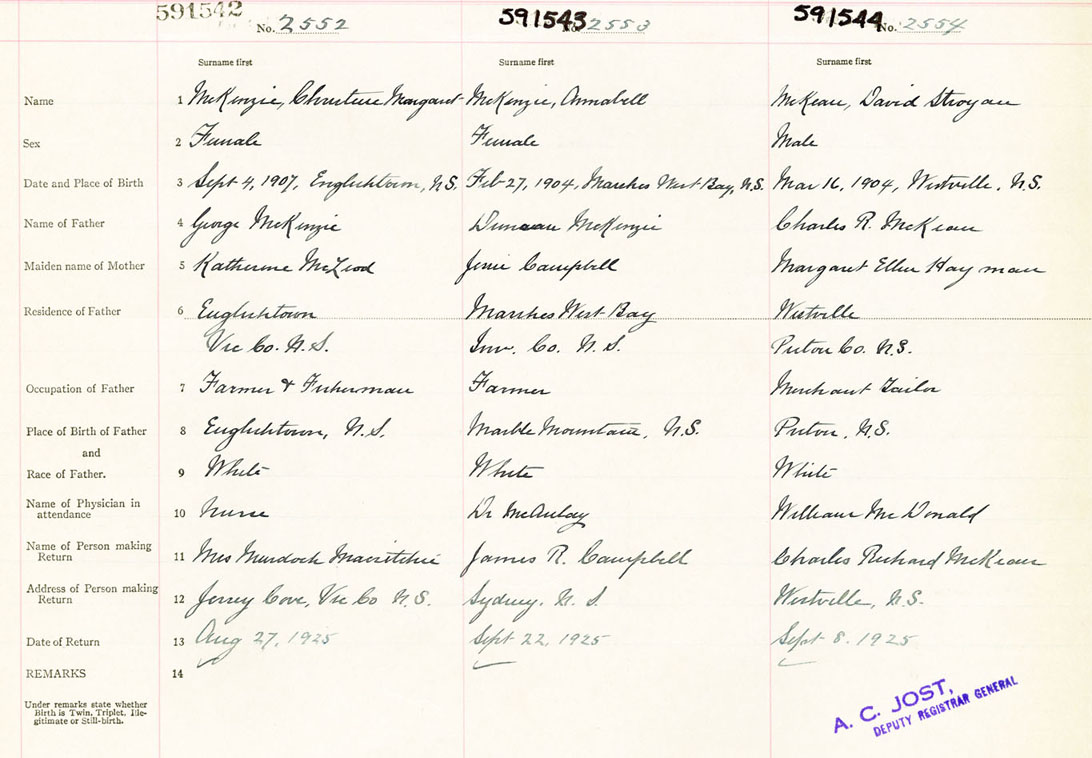 591542 591543 591544
No. 2552 No. 2553 No. 2554
Surname first Surname first Surname first
Name 1 McKenzie, Christene Margaret McKenzie, Annabell McKean, David Stroyan
Sex 2 Female Female Male
Date and Place of Birth 3 Sept 4, 1907, Englishtown, N.S. Feb 27, 1904, Marshes West Bay, N.S. Mar 16, 1904, Westville, N.S.
Name of Father 4 George McKenzie Duncan McKenzie Charles R. McKean
Maiden name of Mother 5 Katherine McLeod Jessie Campbell Margaret Ellen Hayman
Residence of Father 6 Englishtown Marshes West Bay Westville
Vic Co. N.S. Inv. Co. N.S. Pictou Co. N.S.
Occupation of Father 7 Farmer & Fisherman Farmer Merchant Tailor
Place of Birth of Father 8 Englishtown, N.S. Marble Mountain, N.S. Pictou, N.S.
and
Race of Father. 9 White White White
Name of Physician in
attendance 10 Nurse Dr McAulay William McDonald
Name of Person making
Return 11 Mrs Murdoch James R. Campbell Charles Richard McKean
Address of Person making
Return 12 Jersey Cove, Vic Co N.S. Sydney, N.S. Westville, N.S.
Date of Return 13 Aug 27, 1925 Sept 22, 1925 Sept 8, 1925
REMARKS 14
Under remarks state whether
Birth is Twin, Triplet. Ille-
gitimate or Still-birth.
A. C. JOST,
DEPUTY REGISTRAR GENERAL